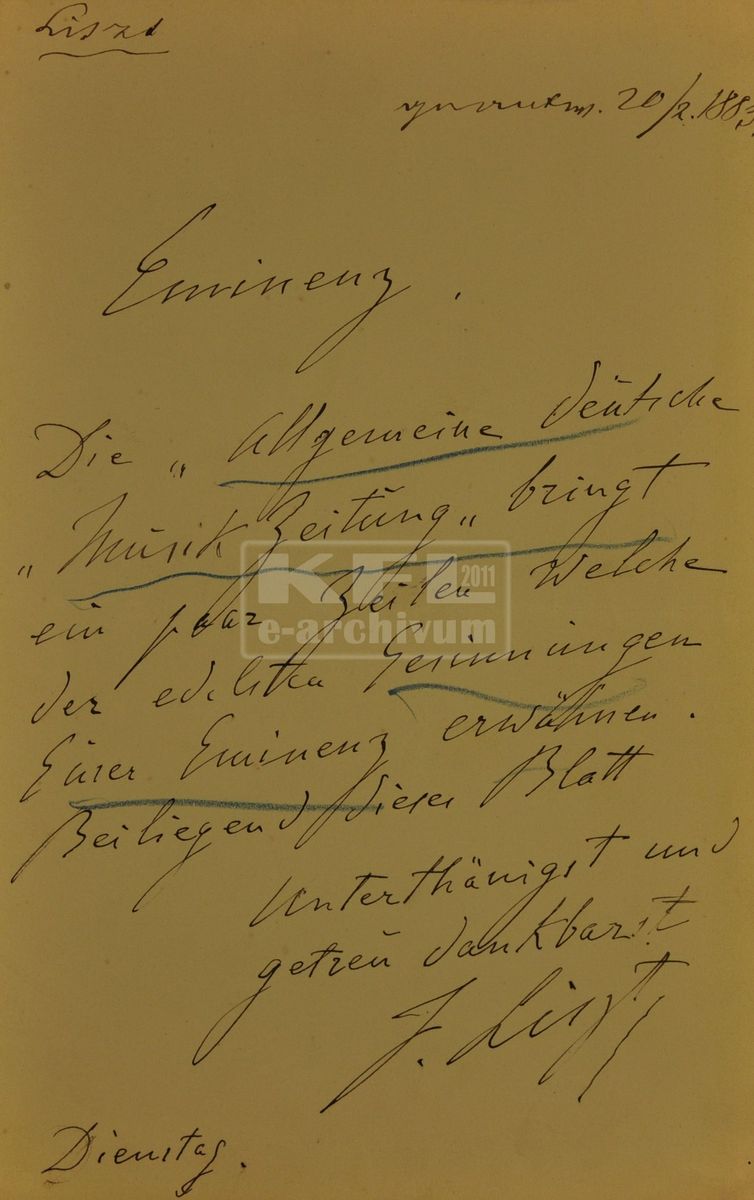 Liszt
20/2. 1883.
Eminenz.
Die „Allgemeine deutsche
„Musik Zeitung„ bringt
ein paar Zeilen welche
der edelsten Gesinnungen
Eurer Eminenz erwähnen.
Beiliegend dieses Blatt
Unterthänigst und
getreu dankbarst
F. Liszt
Dienstag.
KFL 2011
e-archivum